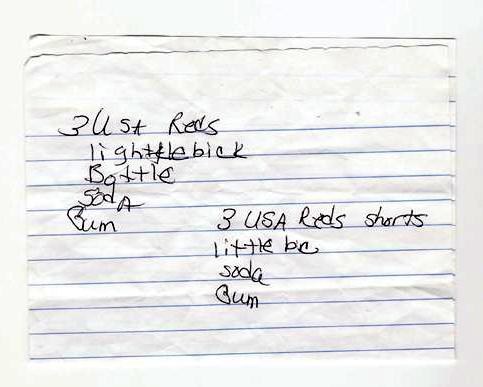 3 USA Reds
lightlebick
Bottle
SodA
Gum
3 USA Reds shorts
little bc
soda
Gum